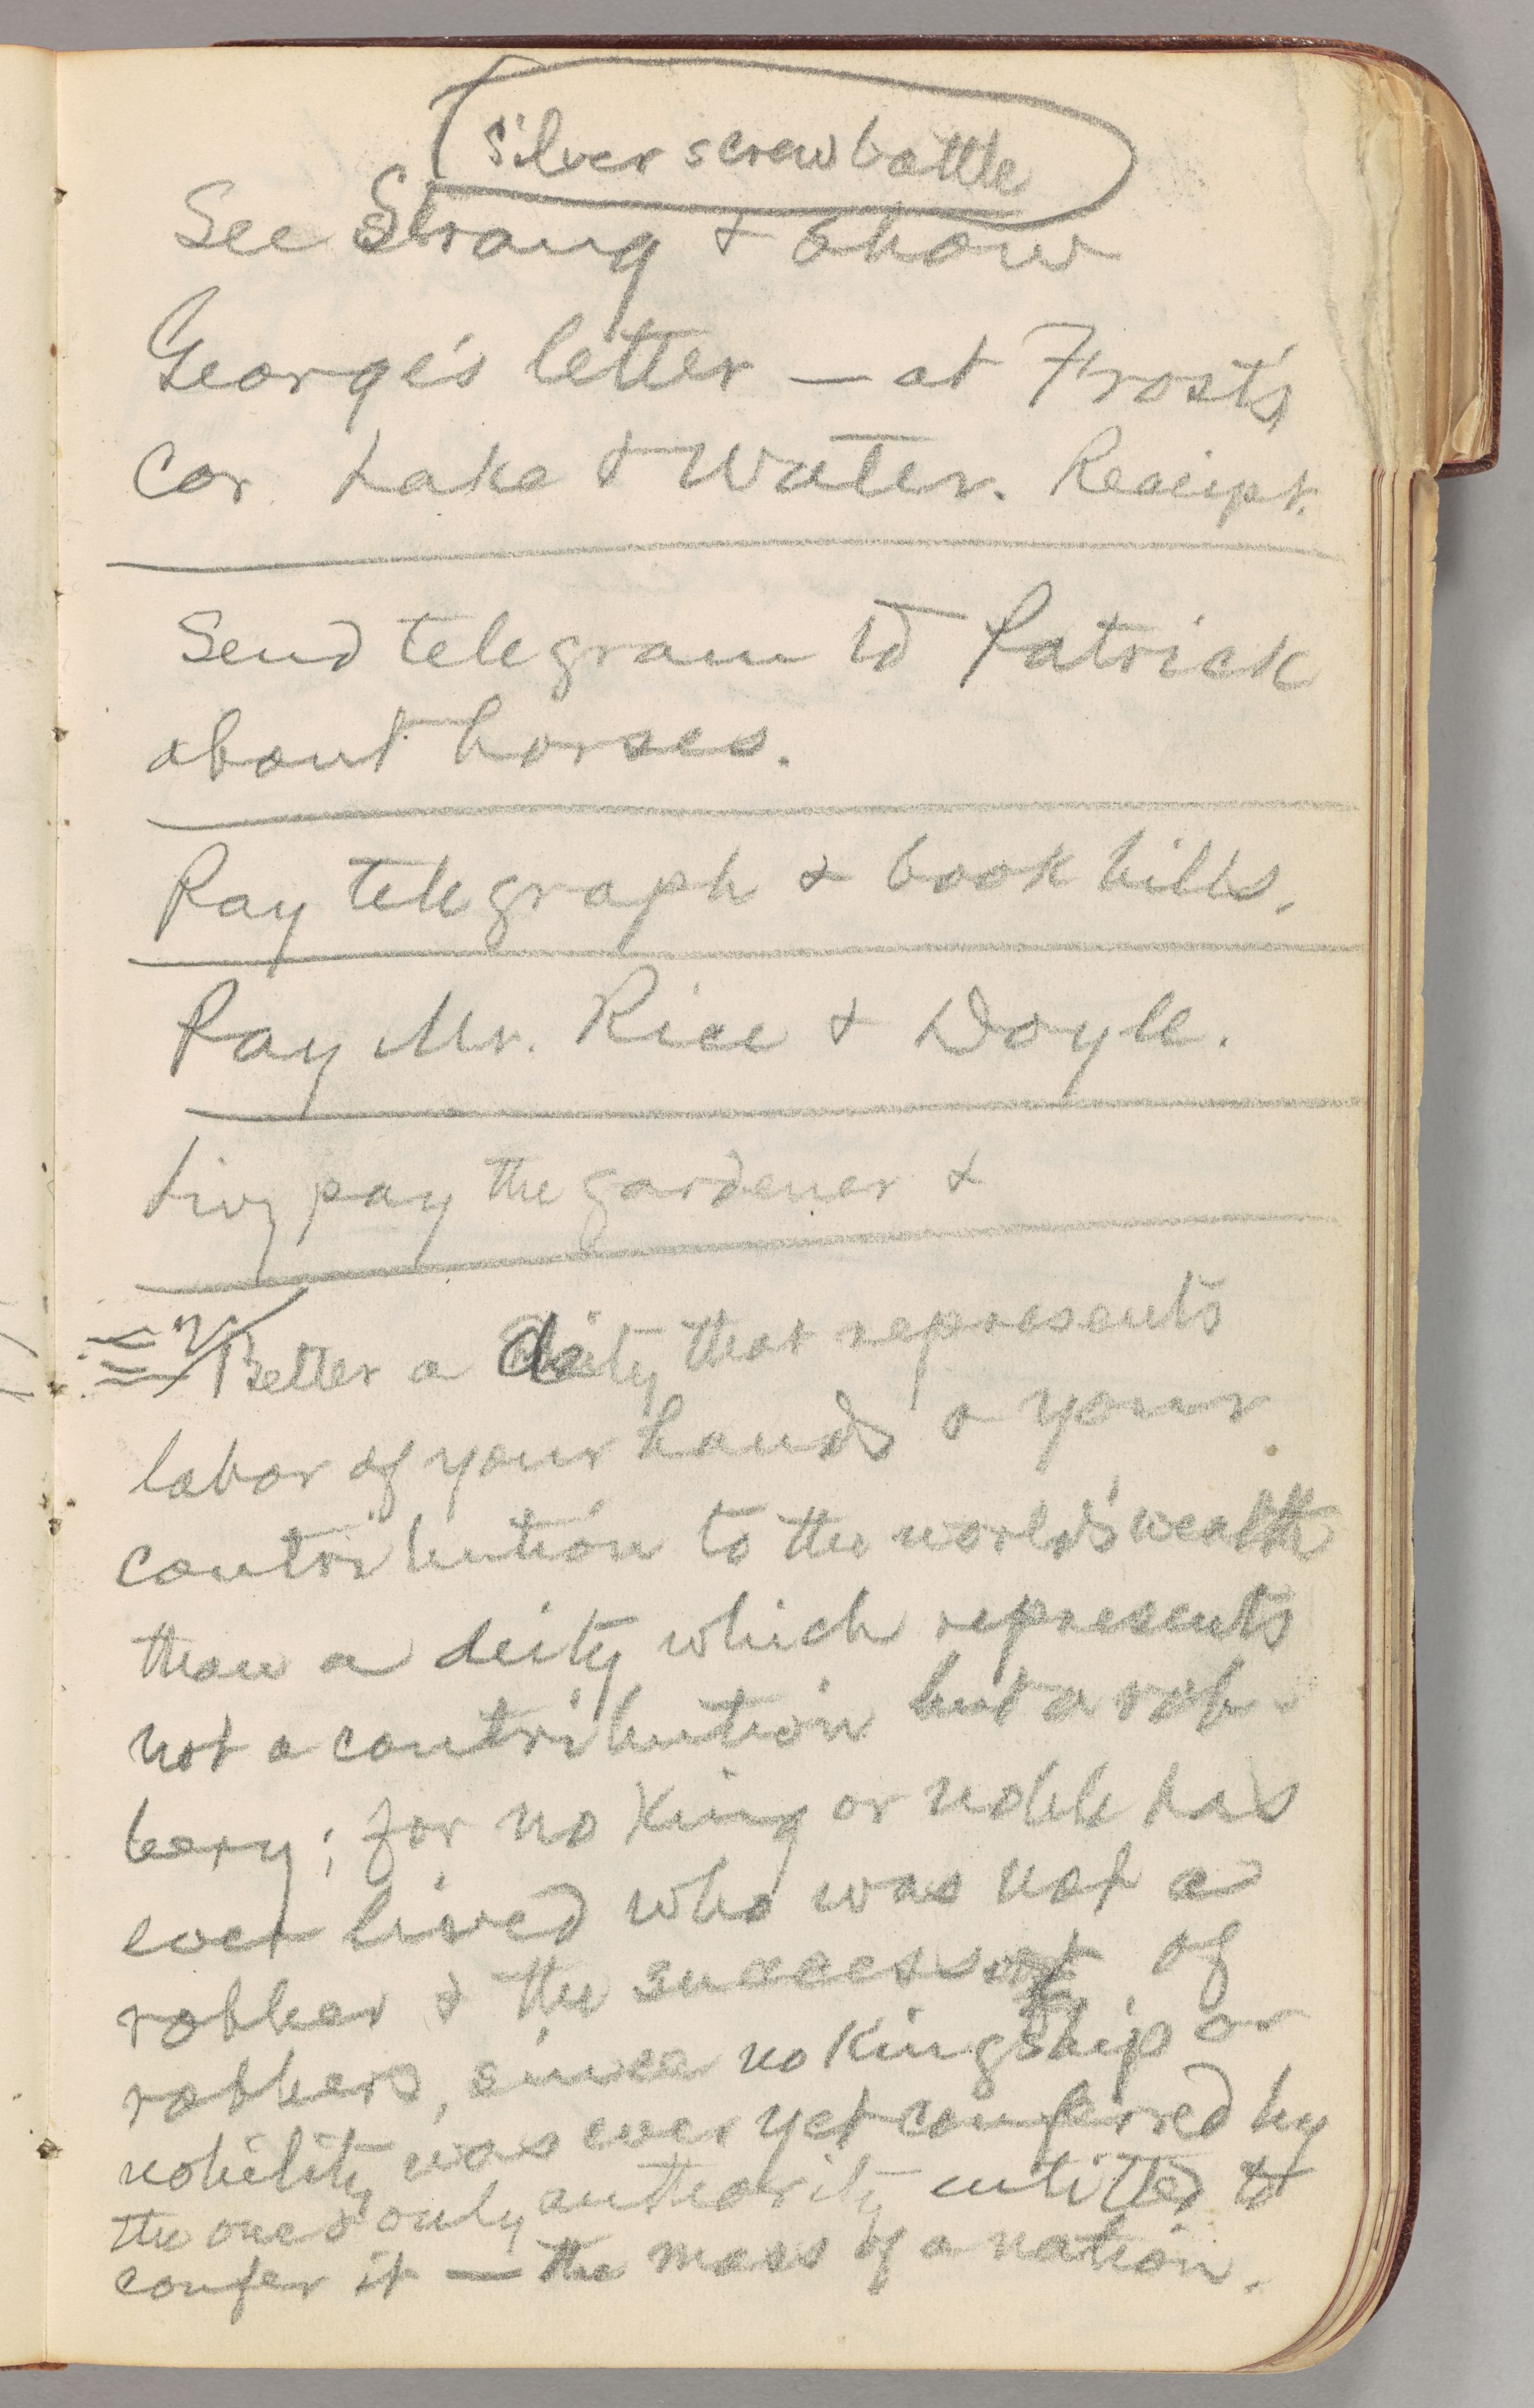 Silver screw bottle
See Strong & show
George's letter — at Frost's
Cor. Lake & Water. Receipt.
Send telegram to Patrick
about horses.
Pay telegraph & book bills.
Pay Mr. Rice & Doyle.
Livy pay the gardener &
Better a deity that represents
labor of your hands & your
contribution to the world's wealth
than a deity which represents
not a contribution but a rob-
bery; for no king or noble has
ever lived who was not a
robber & the successor of
robbers, since no kingship or
nobility was ever yet conferred by
the one & only authority entitled to
confer it — the mass of a nation.